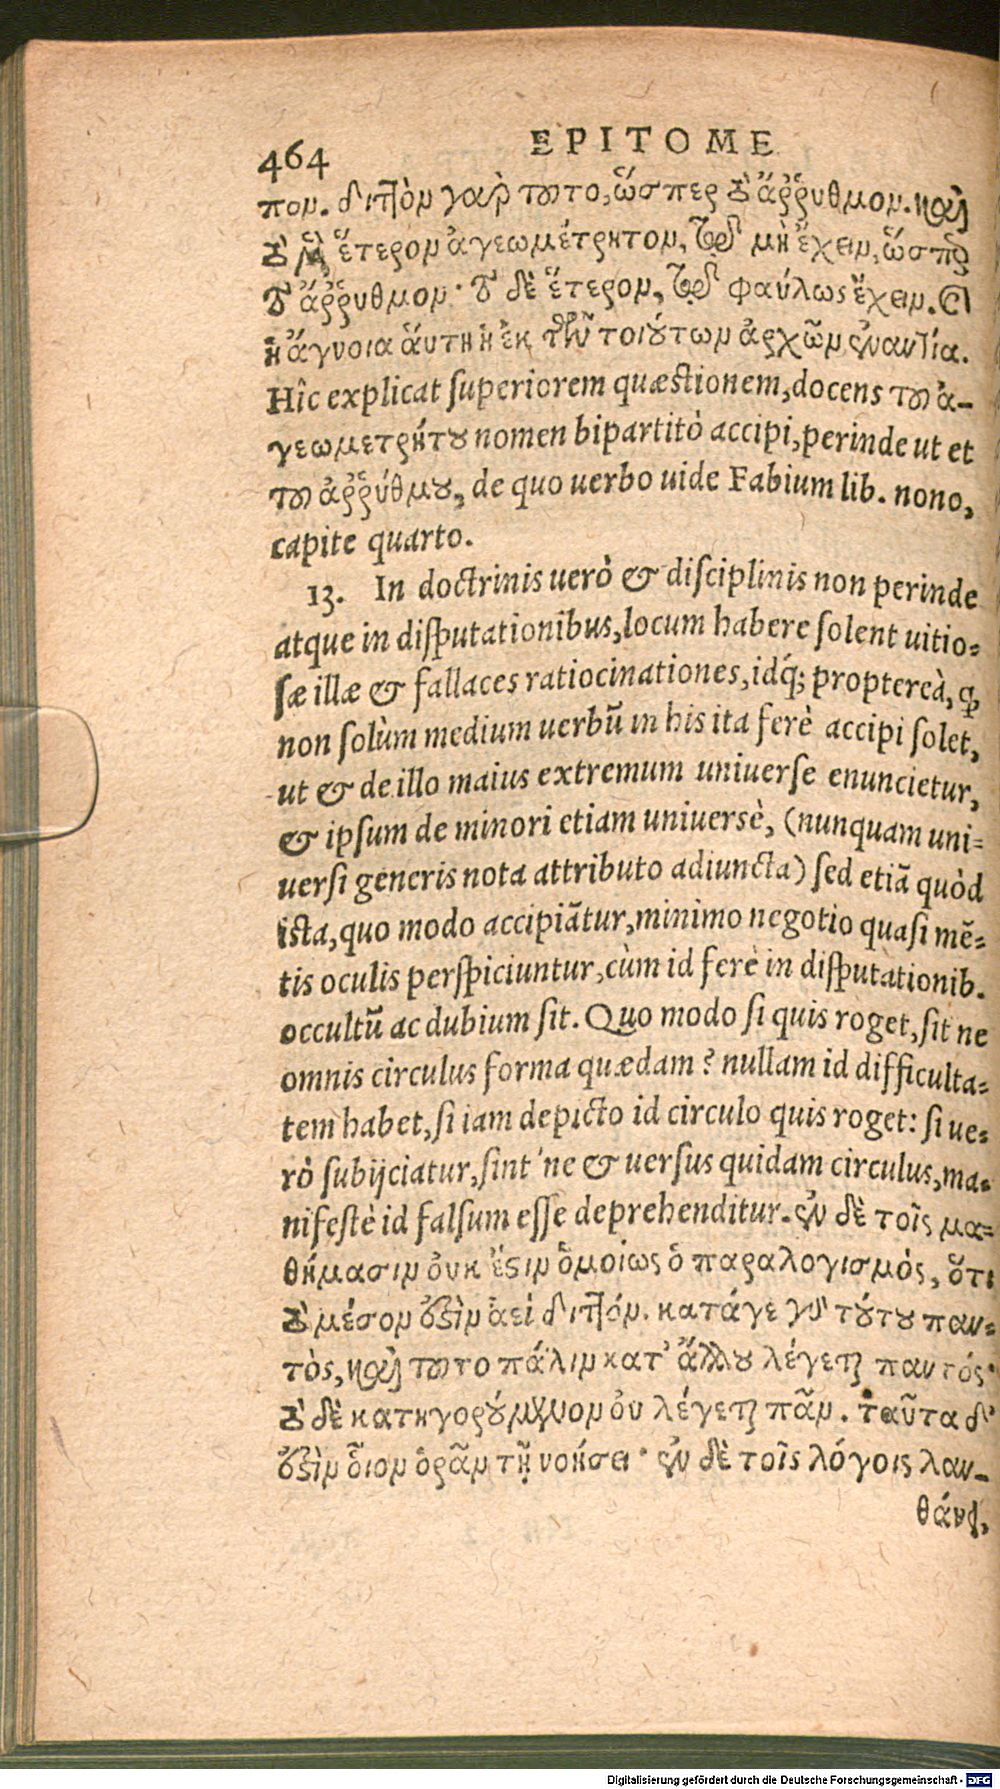 464 EPITOME
πον. διττὸν γὰρ τοῦτο, ὥσπερ τὸ ἄῤῥυθμον. καὶ
τὸ μὲν ἕτερον ἀγεωμέτρητον, τῷ μὴ ἔχειν, ὥσπερ
τὸ ἄῤῥυθμον· τὸ δὲ ἕτερον, τῷ φαύλως ἔχειν. καὶ
ἡ ἄγνοια ἅυτη ἡ ἐκ τῶν τοιούτων ἀρχῶν ἐναντία.
Hîc explicat superiorem quæstionem, docens τοῦ ἀ-
γεωμετρήτου nomen bipartitò accipi, perinde ut et
τοῦ ἀῤῥύθμου, de quo uerbo uide Fabium lib. nono,
capite quarto.
13. In doctrinis uerò & disciplinis non perinde
atque in disputationibus, locum habere solent uitio-
sæ illæ & fallaces ratiocinationes, idq́; propterea, ꝙ
non solùm medium uerbũ in his ita ferè accipi solet,
ut & de illo maius extremum uniuerse enuncietur,
& ipsum de minori etiam uniuersè, (nunquam uni-
uersi generis nota attributo adiuncta) sed etiã quòd
ista, quo modo accipiãtur, minimo negotio quasi mẽ-
tis oculis perspiciuntur, cùm id ferè in disputationib.
occultũ ac dubium sit. Quo modo si quis roget, sit ne
omnis circulus forma quædam? nullam id difficulta-
tem habet, si iam depicto id circulo quis roget: si ue-
rò subijciatur, sint'ne & uersus quidam circulus, ma-
nifestè id falsum esse deprehenditur. ἐν δὲ τοῖς μα-
θήμασιν οὐκ ἔστιν ὁμοίως ὁ παραλογισμὸς, ὅτι
τὸ μέσον ἐστὶν ἀεὶ διττόν. κατάγε γὰρ τούτου παν-
τὸς, καὶ τοῦτο πάλιν κατ' ἄλλου λέγεται παντός·
τὸ δὲ κατηγορούμενον οὐ λέγεται πᾶν. ταῦτα δ'
ἐστὶν οἷον ὁρᾶν τῇ νοήσει· ἐν δὲ τοῖς λόγοις λαν-
θάνει,
Digitalisierung gefördert durch die Deutsche Forschungsgemeinschaft - DFG